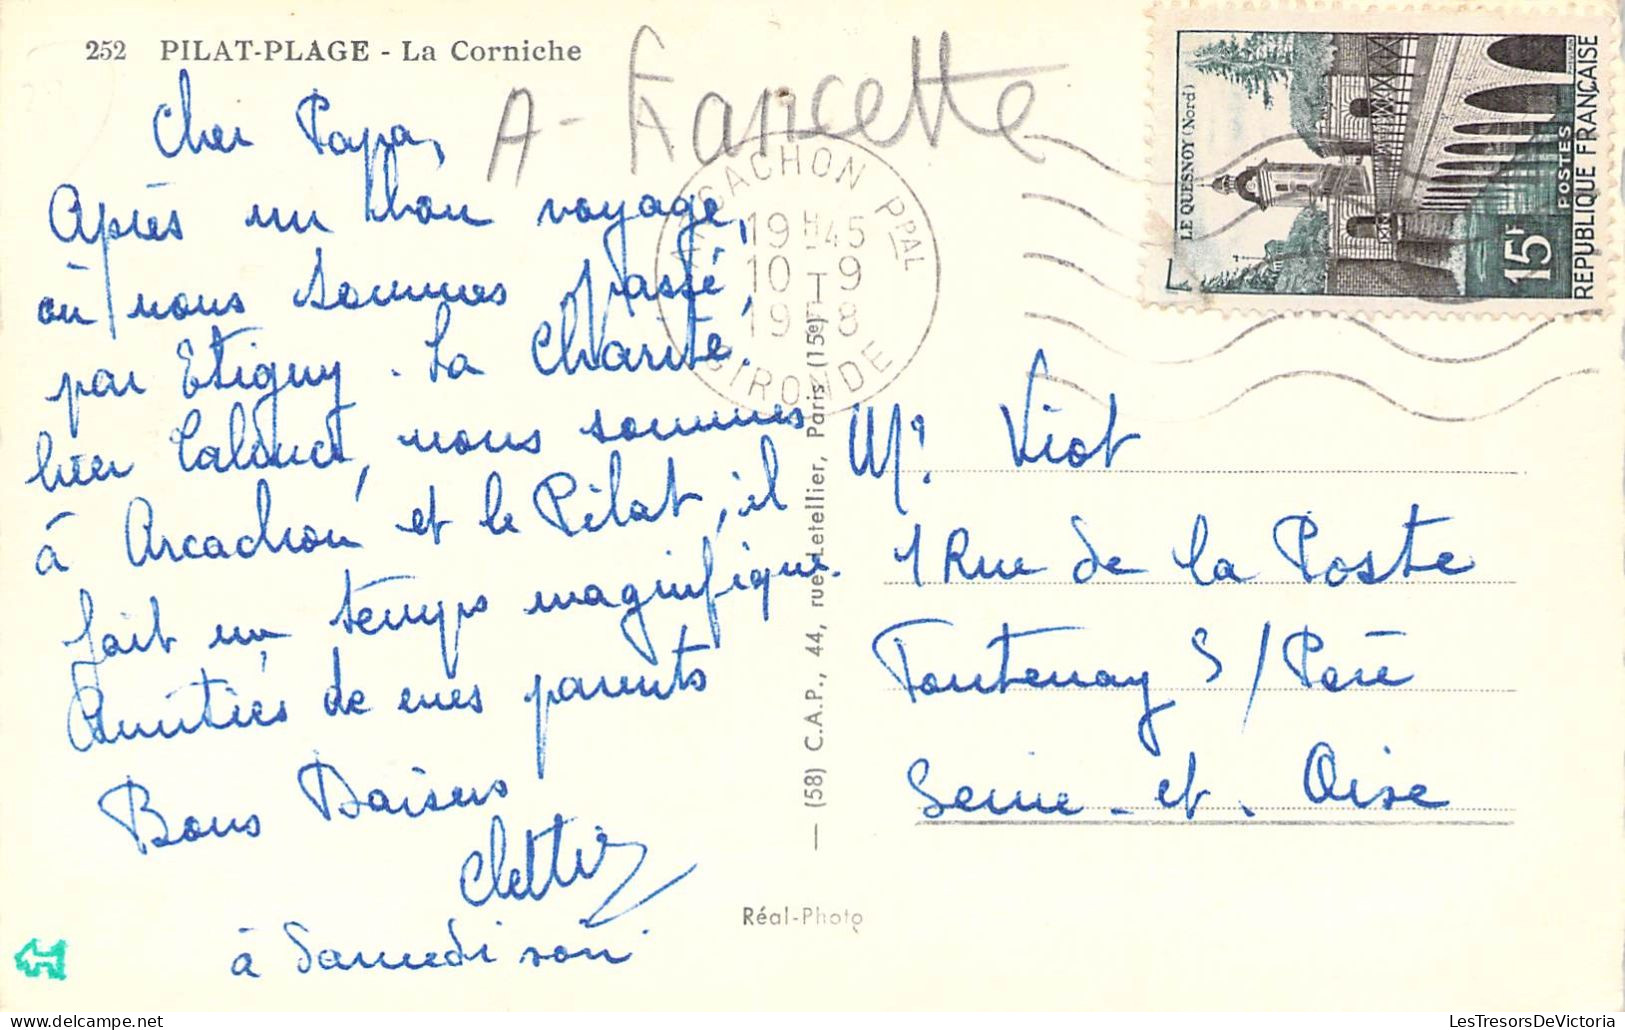 252 PILAT-PLAGE - La Corniche
A - Francette
Cher Papa,
Après un bon voyage,
où nous sommes passé,
par Etigny. La Charité.
hier nous sommes
à Arcachon et le Pilat, il
fait un temps magnifique.
Amitiés de mes parents
Bons Baisers
à Samedi soir
ARCACHON PPAL
19H45
10-9
GIRONDE
LE QUESNOY (Nord)
15F
POSTES
REPUBLIQUE FRANÇAISE
Mr Viot
1 Rue de la Poste
Fontenay S/ Père
Seine-et-Oise
— (58) C.A.P., 44, rue Letellier, Paris (15e)
Réal-Photo
LesTresorsDeVictoria
https://www.delcampe.net